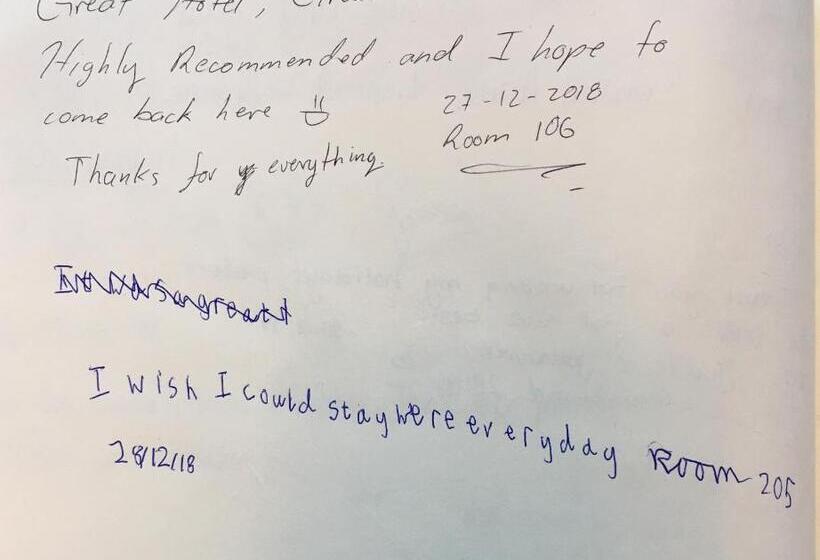 Great Hotel,
Highly Recommended and I hope to
come back here
27-12-2018
Room 106
Thanks for everything.
I wish I could stay here every day Room 205
28/12/18